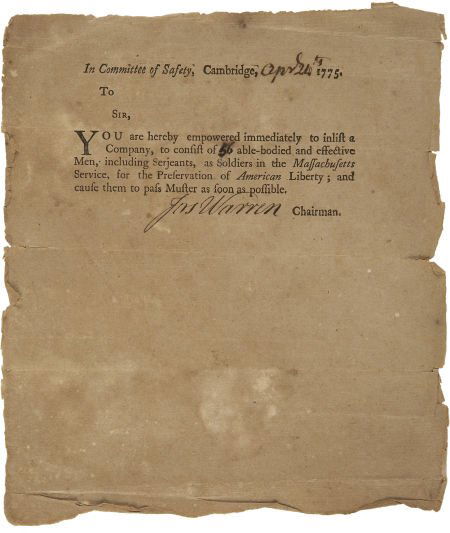 In Committee of Safety, Cambridge, April 24th 1775.
To
SIR,
YOU are hereby empowered immediately to inlist a
Company, to consist of 56 able-bodied and effective
Men, including Serjeants, as Soldiers in the Massachusetts
Service, for the Preservation of American Liberty; and
cause them to pass Muster as soon as possible.
Jos Warren Chairman.